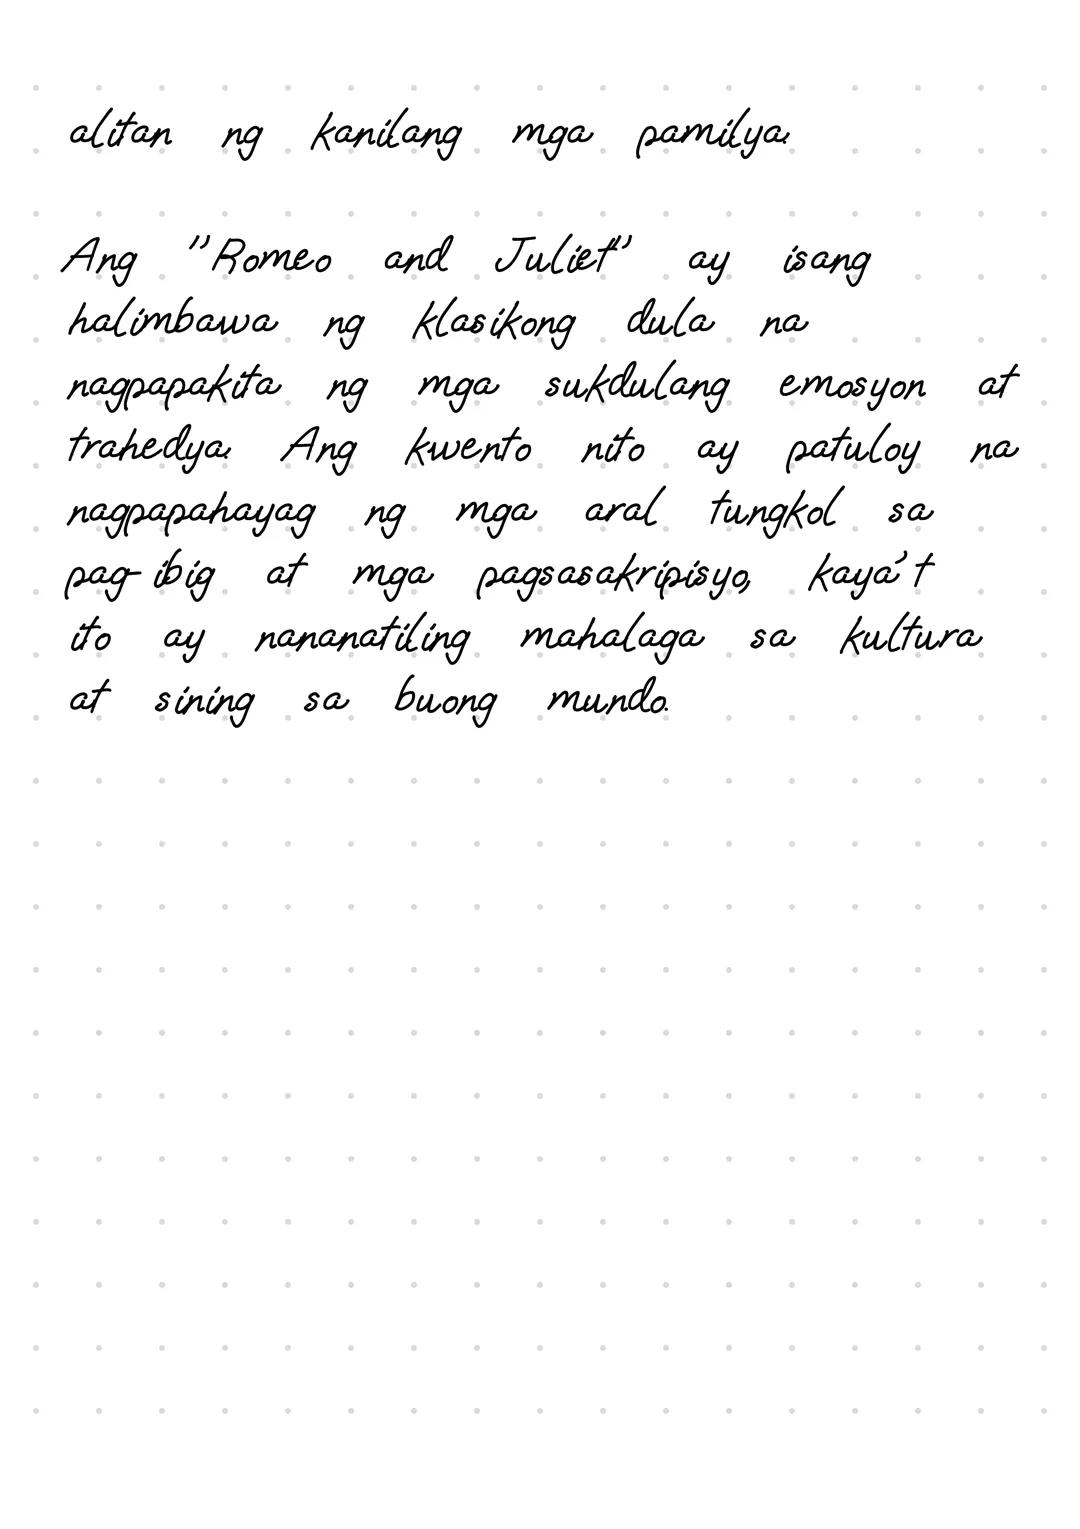 alitan ng kanilang mga pamilya.
Ang "Romeo and Juliet" ay isang
halimbawa ng klasikong dula na
nagpapakita ng mga sukdulang emosyon at
trahedya. Ang kwento nito ay patuloy na
nagpapahayag ng mga aral tungkol sa
pag-ibig at mga pagsasakripisyo, kaya't
ito ay nananatiling mahalaga sa kultura
at sining sa buong mundo.